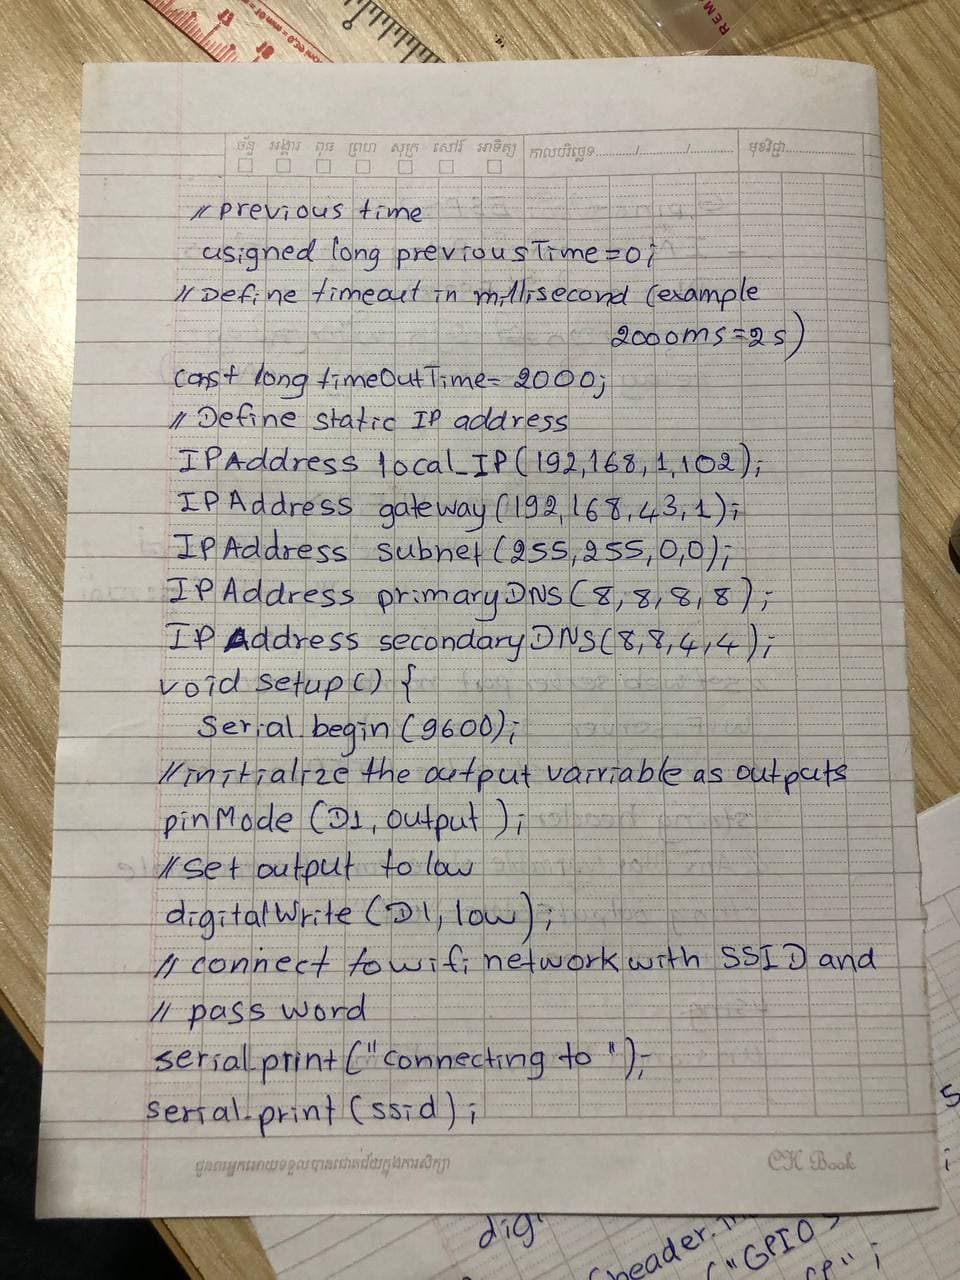 REM
ច័ន្ទ អង្គារ ពុធ ព្រហ សុក្រ សៅរ៍ អាទិត្យ កាលបរិច្ឆេទ............/............/............ មុខវិជ្ជា..................
// previous time
usigned long previousTime=0;
// Define timeout in millisecond (example
2000ms=2s)
const long timeOutTime= 2000;
// Define static IP address
IPAddress local_IP(192,168,1,102);
IPAddress gateway(192,168,43,1);
IPAddress subnet(255,255,0,0);
IPAddress primaryDNS(8,8,8,8);
IPAddress secondaryDNS(8,8,4,4);
void setup() {
Serial.begin(9600);
//initialize the output vairiable as outputs
pinMode (D1, output );
//set output to low
digitalWrite (D1, low);
// connect to wifi network with SSID and
// pass word
serial.print("connecting to ");
serial.print(ssid);
CH Book
s
;
dig
header.in
("GPIO 5
";